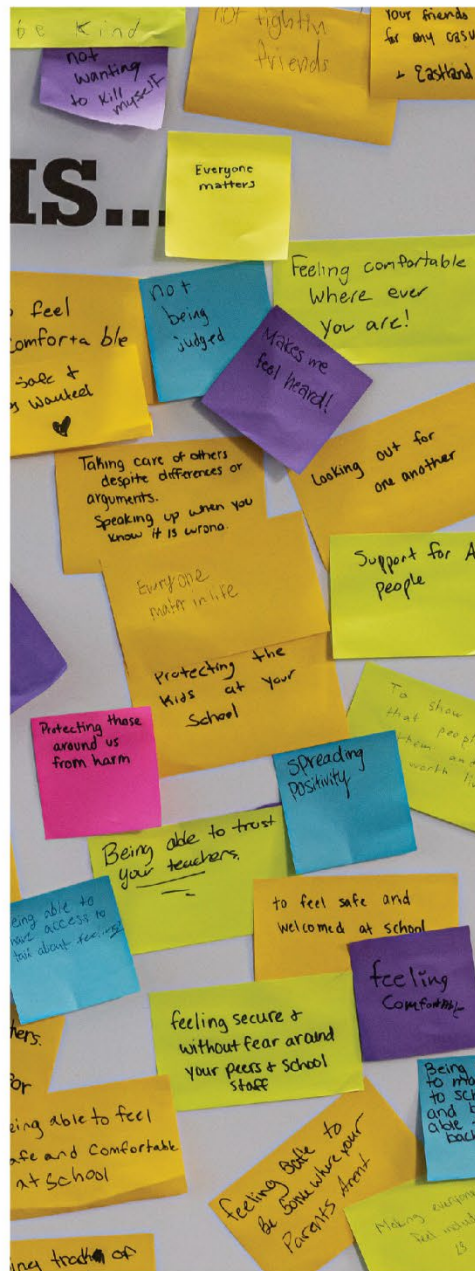 be Kind
not fightin
friends
your friends
for any casu
+ Eastland
not
wanting
to kill
myself
IS...
Everyone
matters
Feeling comfortable
where ever
you are!
not
being
judged
feel
comfortable
safe &
wanted
Makes me
feel heard!
Taking care of others
despite differences or
arguments.
Speaking up when you
know it is wrong.
Looking out for
one another
Support for A
people
Everyone
matter in life
Protecting the
Kids at your
School
To show
that peopl
them and
worth li
Protecting those
around us
from harm
spreading
positivity
Being able to trust
your teachers.
eing able to
have access to
talk about feelings
to feel safe and
welcomed at school
feeling
Comfortable
feeling secure &
without fear around
your peers & School
staff
hers.
for
Being
to
to sc
and
able
back
eing able to feel
afe and Comfortable
at School
feeling safe to
Be Somewhere your
Parents Arent
Making
feel
is
ing track of